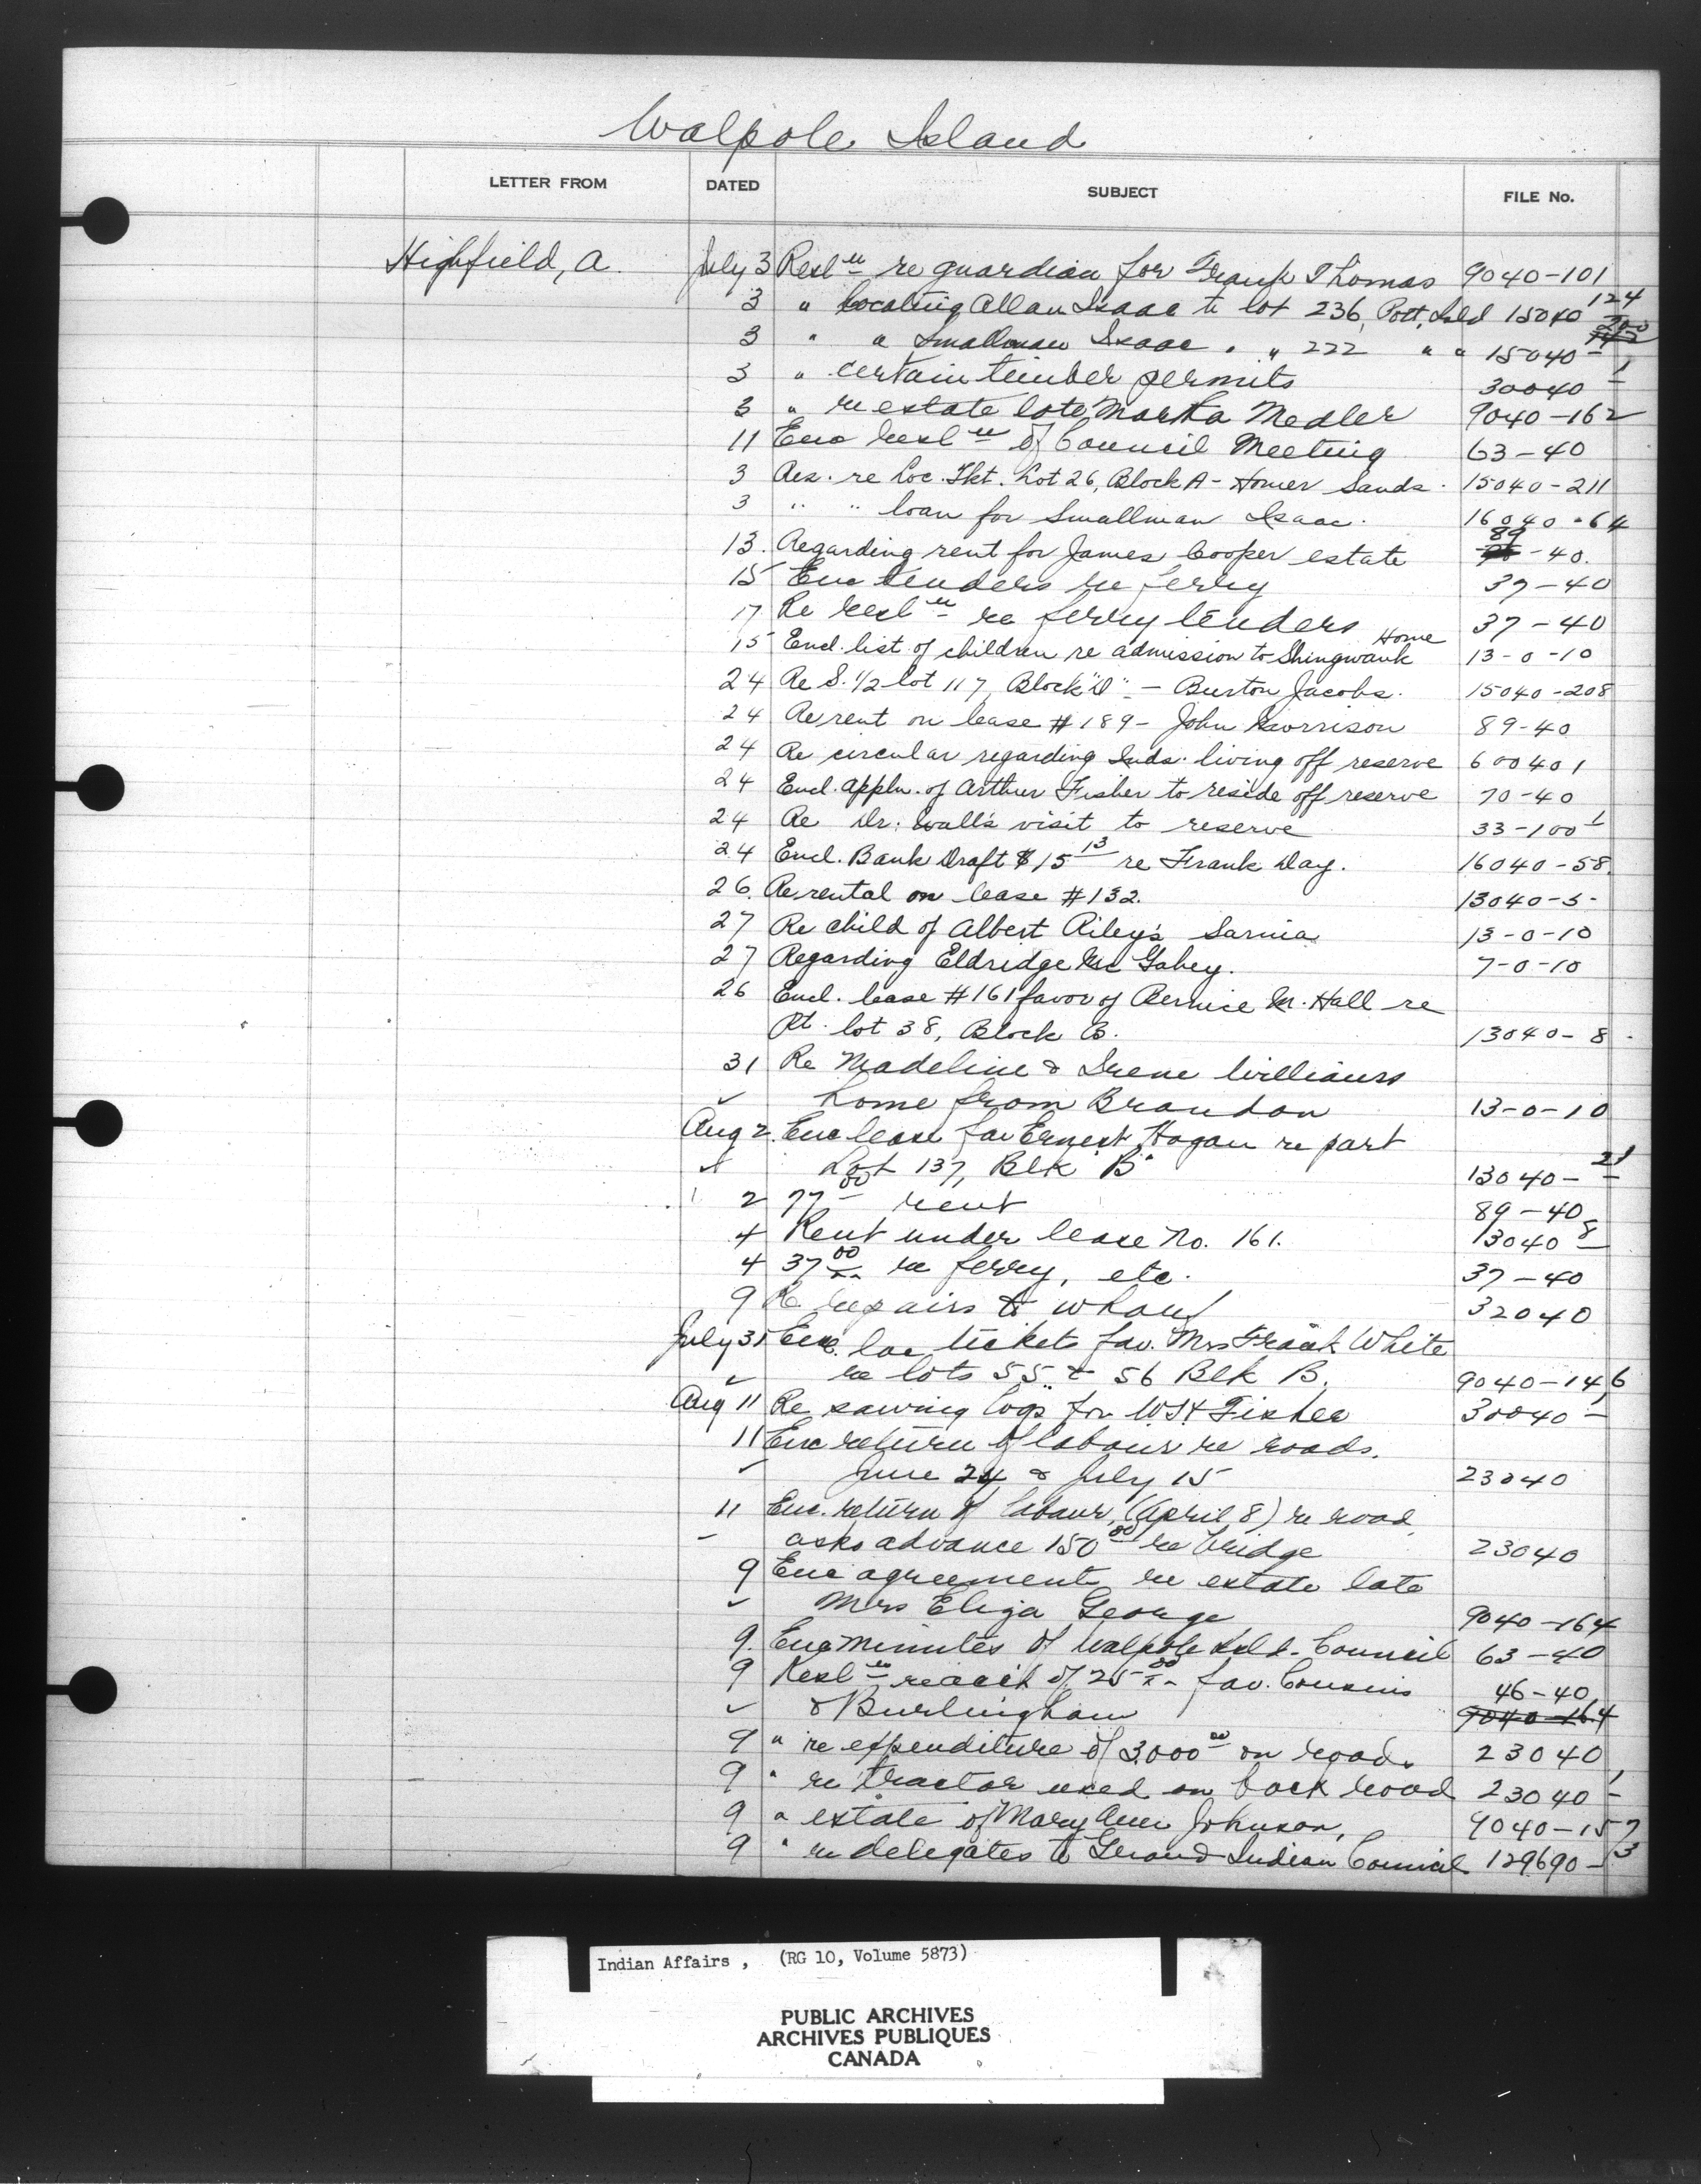 Walpole Island
LETTER FROM DATED SUBJECT FILE No.
Highfield, A. July 3 Resl re guardian for Frank Thomas 9040-101
3 " locating Allan Isaac to lot 236, Pott. Isld 15040 124
3 " " Smallman Isaac " " 222 " " 15040 -
3 " certain timber permits 30040 - 1
3 " re estate late Martha Medler 9040-162
11 Enc Resl of Council Meeting 63-40
3 Res. re Loc. Tkt. Lot 26, Block A - Homer Sands. 15040-211
3 " " loan for Smallman Isaac. 16040-64
13. Regarding rent for James Cooper estate 89-40.
15 Enc tenders re ferry 37-40
17 Re Resl re ferry tenders 37-40
15 Encl. list of children re admission to Shingwauk Home 13-0-10
24 Re S. 1/2 lot 117, Block "D" - Burton Jacobs. 15040-208
24 Re rent on lease #189 - John Morrison 89-40
24 Re circular regarding Inds. living off reserve 60040 1
24 Encl. appln. of Arthur Fisher to reside off reserve 70-40
24 Re Dr. Wall's visit to reserve 33-100 1
24 Encl. Bank Draft $15 13 re Frank Day. 16040-58.
26. Re rental on lease #132. 13040-5-
27 Re child of Albert Riley's Sarnia 13-0-10
27 Regarding Eldridge Mc Gahey. 7-0-10
26 Encl. lease #161 favor of Bernice M. Hall re
Pt. lot 38, Block B. 13040-8-
31 Re Madeline & Irene Williams
✓ home from Brandon 13-0-10
Aug 2. Enc lease fav Ernest Hogan re part
✓ Lot 137, Blk "B" 13040-21
2 77 00 rent 89-40
4 Rent under lease No. 161. 13040 8
4 37 00 re ferry, etc. 37-40
9 Re repairs to wharf 32040
July 31 Enc. loc tickets fav. Mrs Frank White
✓ re lots 55 & 56 Blk B. 9040-146
Aug 11 Re sawing logs for Fisher 30040 - 1
11 Enc return of labour re roads.
✓ June 24 & July 15 23040
11 Enc. return of labour, (April 8) re road
- asks advance 150 00 re bridge 23040
9 Enc agreement re estate late
✓ Mrs Eliza George 9040-164
9. Enc minutes of Walpole Isld. Council 63-40
9 Resl re acct of 25 00 fav. Cousins 46-40
✓ & Burlingham 9040-164
9 " re expenditure of 3000 00 on roads 23040
9 " re tractor used on back road 23040 - 1
9 " estate of Mary Ann Johnson, 9040-157
9 " re delegates to Grand Indian Council 129690-3
Indian Affairs , (RG 10, Volume 5873)
PUBLIC ARCHIVES
ARCHIVES PUBLIQUES
CANADA